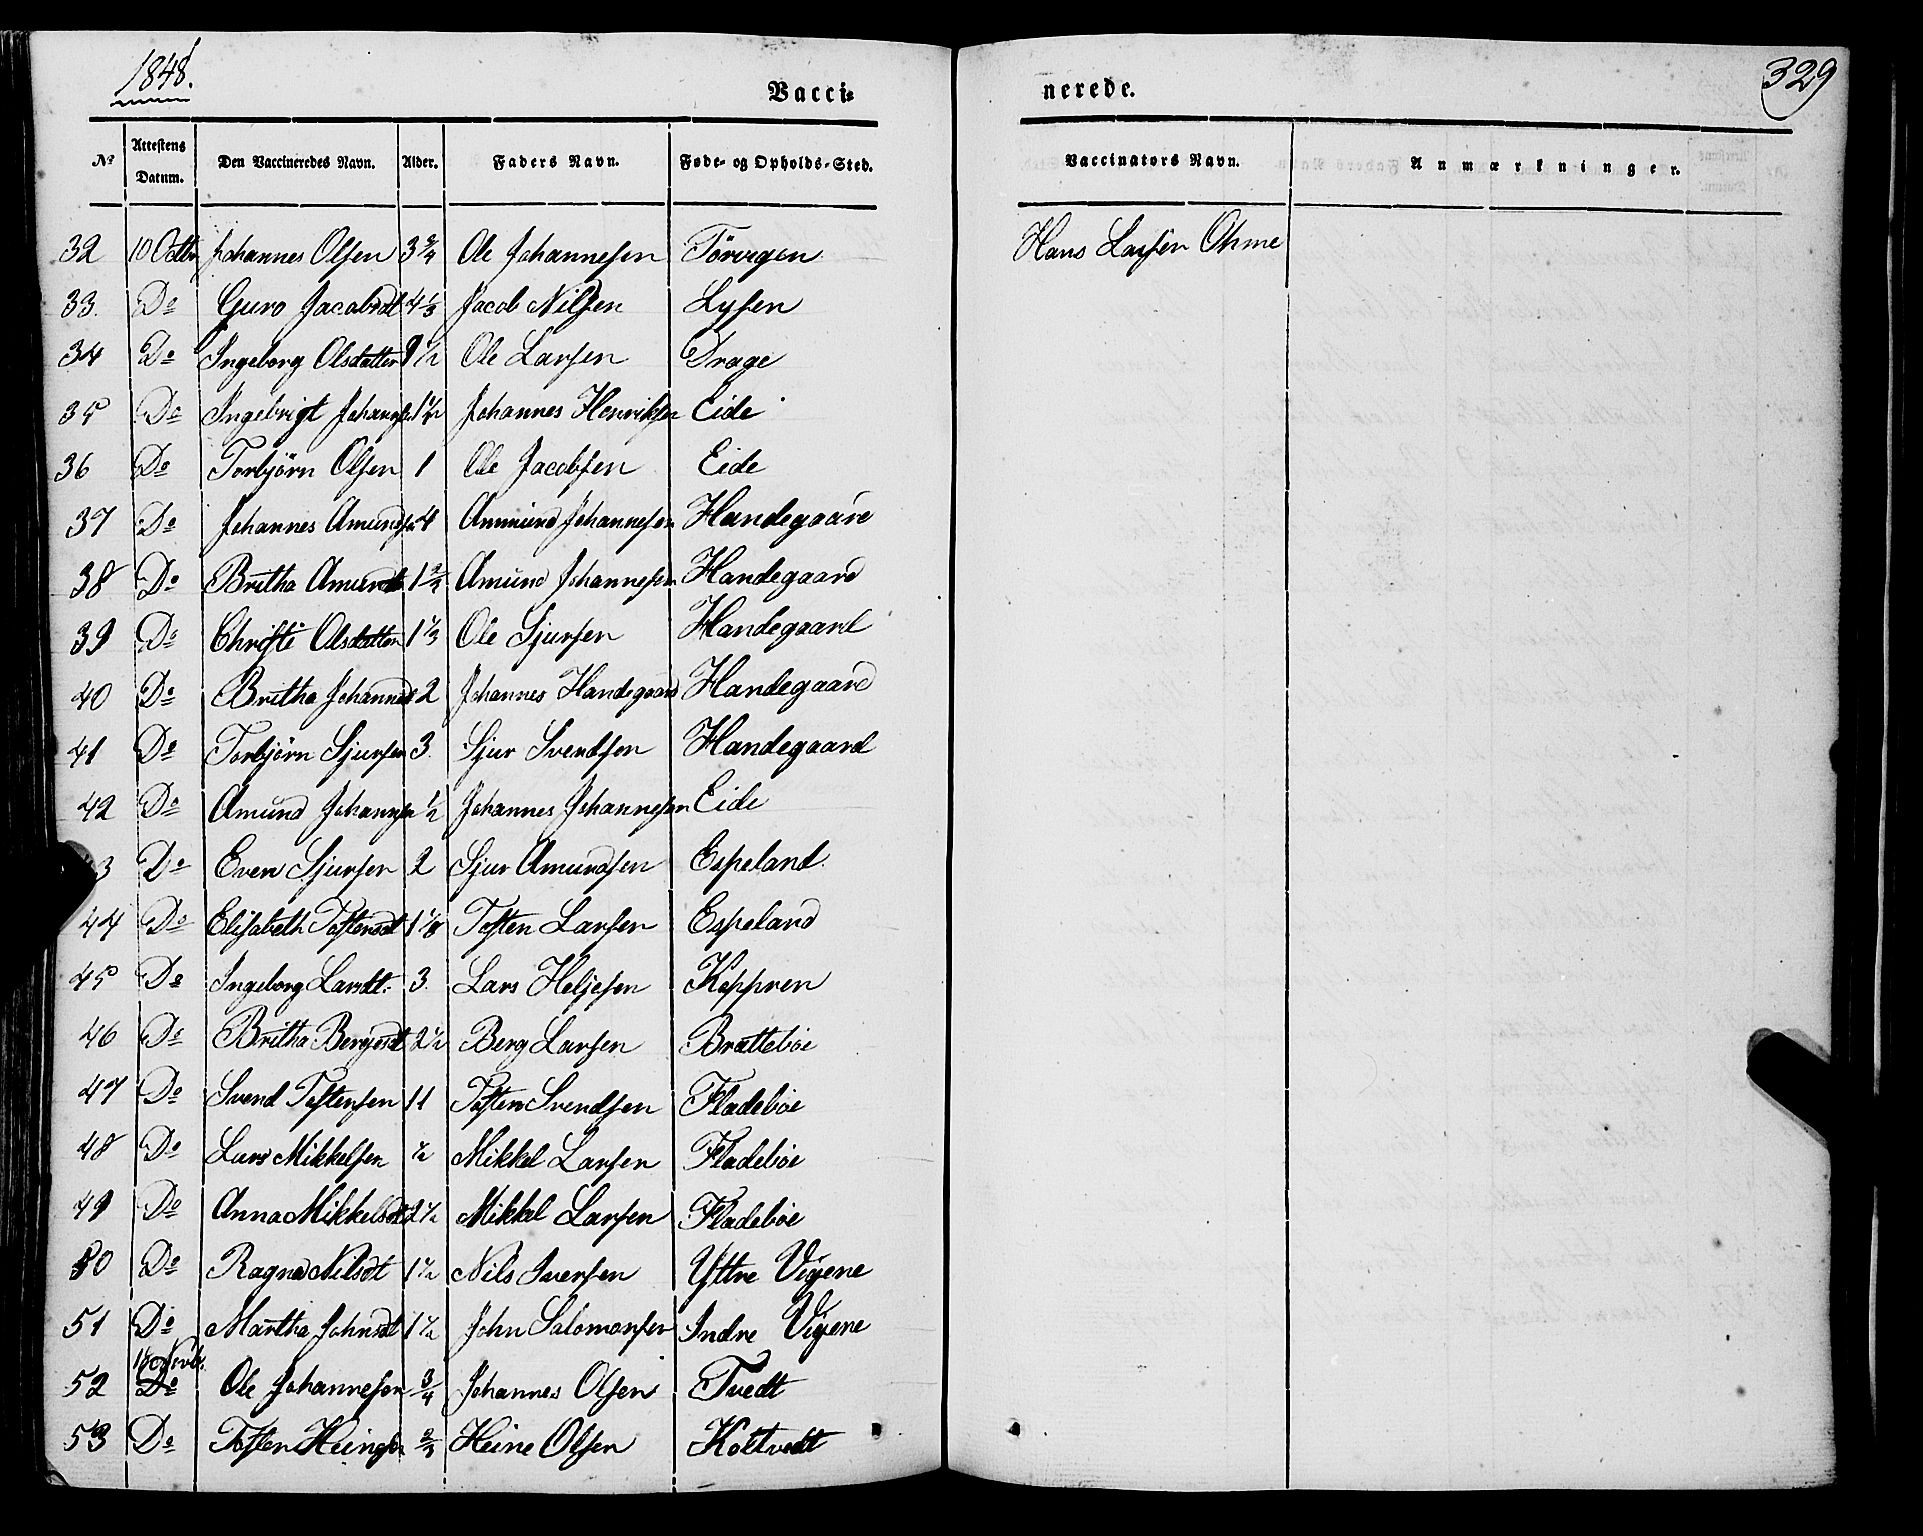 1848.
329
Vacci-
nerede.
No Attestens Datum. Den Vaccineredes Navn. Alder. Faders Navn. Føde- og Opholds-Sted. Vaccinators Navn. Anmærkninger.
32 10 Octbr Johannes Olsen 3 3/4 Ole Johannesen Törvegen Hans Larsen Ohme
33. Do Guro Jacobsdt 4 1/3 Jacob Nilsen Lysen
34 Do Ingeborg Olsdatter 1/2 Ole Larsen Drage
35 Do Ingebrigt Johannsen 1 1/4 Johannes Henriksen Eide
36 Do Torbjörn Olsen 1 Ole Jacobsen Eide
37 Do Johannes Amundsen 4 Ammund Johannesen Handegaard
38 Do Britha Amundsdt 1 2/3 Amund Johannesen Handegaard
39 Do Christi Olsdatter 1 1/3 Ole Sjursen Handegaard
40 Do Britha Johannesdt 2 Johannes Handegaard Handegaard
41 Do Torbjörn Sjursen 3. Sjur Svendsen Handegaard
42 Do Amund Johannesen 1/2 Johannes Johannesen Eide
3 Do Even Sjursen 2 Sjur Amundsen Espeland.
44 Do Elisabeth Tostensdt 1 1/8 Tosten Larsen Espeland
45 Do Ingeborg Larsdt. 3. Lars Heljesen Koppren
46 Do Britha Bergesdt 2 1/2 Berg Larsen Bratteböe
47 Do Svend Tostensen 11 Tosten Svendsen Fladeböe
48 Do Lars Mikkelsen 1/2 Mikkel Larsen Fladeböe
49 Do Anna Mikkelsdt 2 1/2 Mikkel Larsen Fladeböe
50 Do Ragna Nilsdt 1 1/2 Nils Iversen Yttre Vigene
51 Do Martha Johnsdt 1 1/2 John Salomonsen Indre Vigene
18 Novbr.
52 Do Ole Johannesen 3/4 Johannes Olsen Tvedt
53 Do Tosten Heinesen 2/3 Heine Olsen Koltvedt